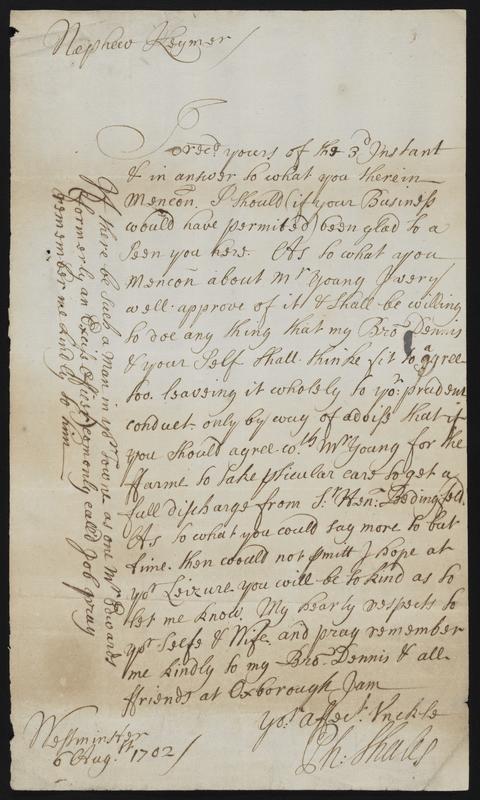 Nephew Keymer
I recd. yours of the 3d Instant
& in answer to what you therein
Mencon. I should (if your Business
would have permited) been glad to a
seen you here. As to what you
Mencon about Mr Young I very
well approve of itt & shall be willing
to doe any thing that my Bro: Dennis
& your Self shall thinke fit to agree
too. leaveing it wholely to yor. prudent
conduct. only by way of advise that if
you should agree wth. Mr Young for the
ffarme to take pticular care to get a
full discharge from Sr. Hen: Bedingfeld.
As to what you could say more to but
time. then would not pmitt I hope at
yor. Leizure you will be to kind as to
let me know. My hearty respects to
yor. Selfe & Wife. and pray remember
me kindly to my Bro: Dennis & all
ffriends at Oxborough I am
yor. affect. Vnckle
Ph:
Westminster
6 Augst. 1702
If there be such a Man in yor. Towne as one Mr Edwards
(formerly an Excise Officer) comonly called Job pray
remember me kindly to him